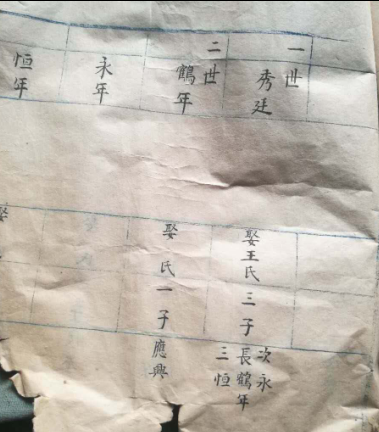 一世
秀廷
二世
鶴年
永年
恒年
娶王氏三子
次永
長鶴年
三恒
娶 氏一子應興
娶